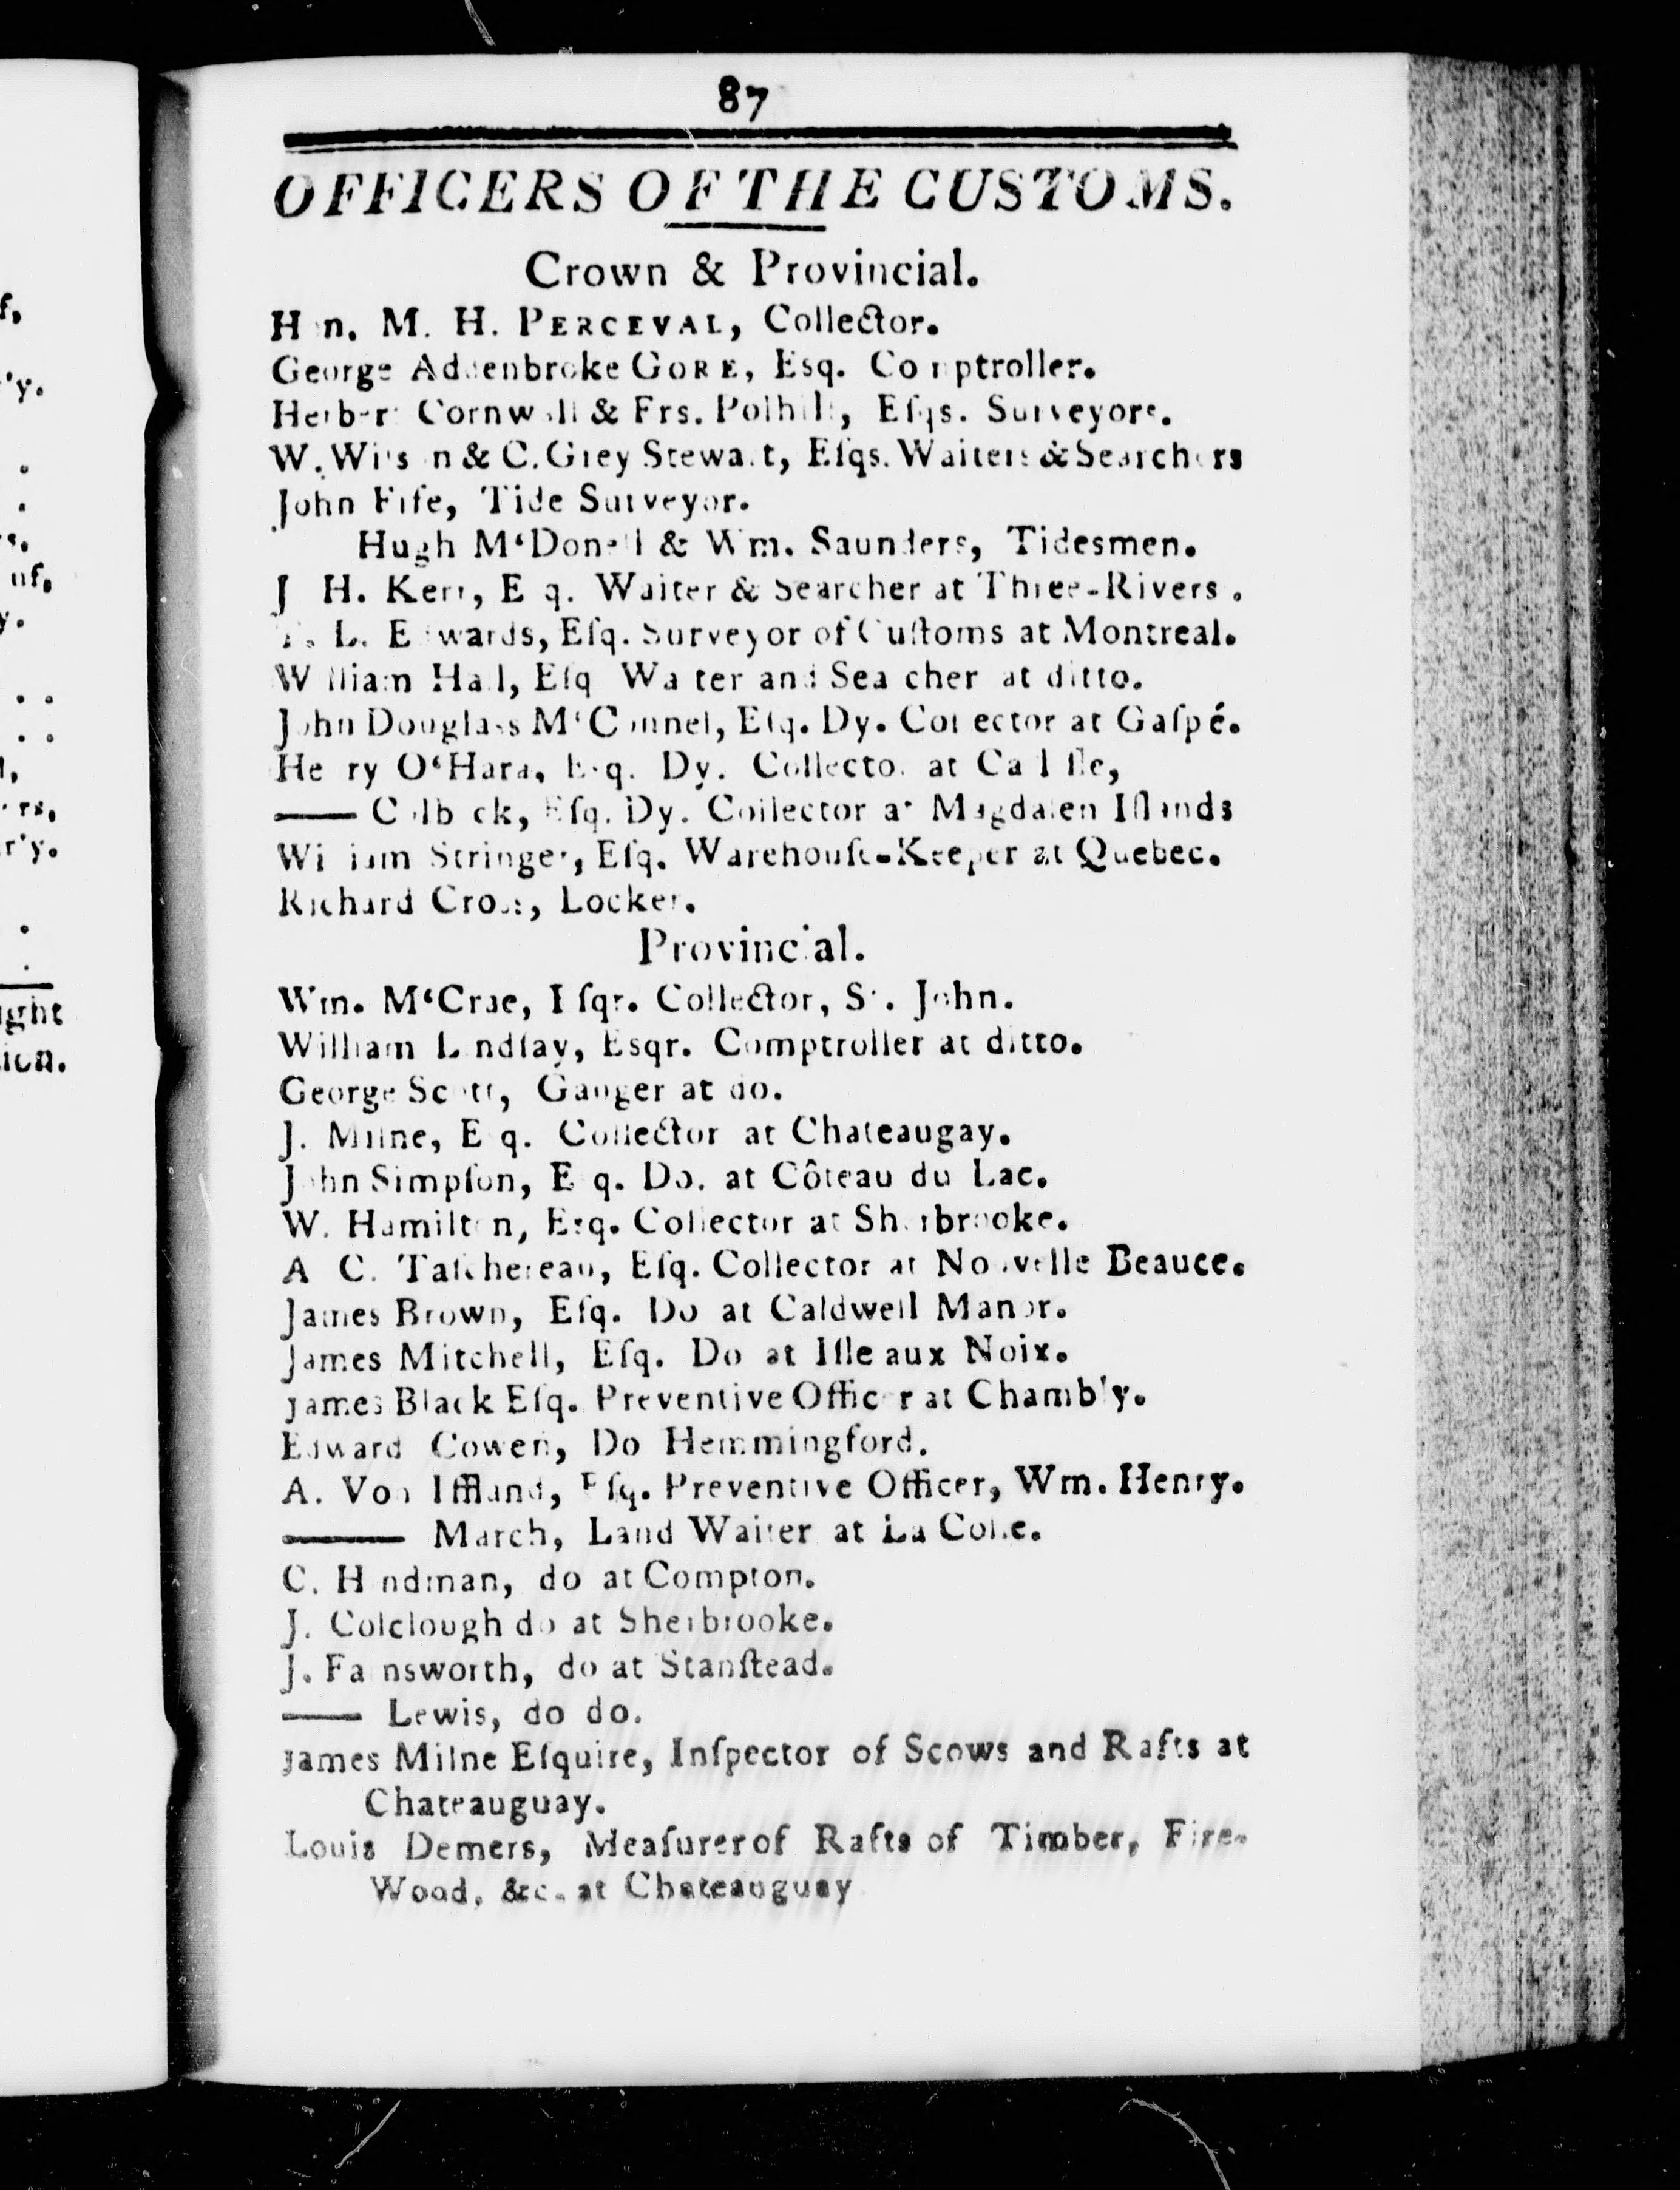 87
OFFICERS OF THE CUSTOMS.
Crown & Provincial.
Hon. M. H. PERCEVAL, Collector.
George Addenbroke GORE, Esq. Comptroller.
Herbert Cornwall & Frs. Polhill, Eſqs. Surveyors.
W. Wilson & C. Grey Stewart, Eſqs. Waiters & Searchers
John Fife, Tide Surveyor.
Hugh M‘Donell & Wm. Saunders, Tidesmen.
J H. Kerr, Esq. Waiter & Searcher at Three-Rivers.
L. Edwards, Eſq. Surveyor of Cuſtoms at Montreal.
William Hall, Eſq Waiter and Searcher at ditto.
John Douglass M‘Connel, Eſq. Dy. Collector at Gaſpé.
Henry O‘Hara, Esq. Dy. Collector at Carliſle,
—— Colbeck, Eſq. Dy. Collector at Magdalen Iſlands
William Stringer, Eſq. Warehouſe-Keeper at Quebec.
Richard Locker.
Provincial.
Wm. M‘Crae, Eſqr. Collector, St. John.
William Lindſay, Esqr. Comptroller at ditto.
George Scott, Gauger at do.
J. Milne, Esq. Collector at Chateaugay.
John Simpſon, Esq. Do. at Côteau du Lac.
W. Hamilton, Esq. Collector at Sherbrooke.
A C. Taſchereau, Eſq. Collector at Nouvelle Beauce.
James Brown, Eſq. Do at Caldwell Manor.
James Mitchell, Eſq. Do at Iſle aux Noix.
James Black Eſq. Preventive Officer at Chambly.
Edward Cowen, Do Hemmingford.
A. Von Iffland, Eſq. Preventive Officer, Wm. Henry.
—— March, Land Waiter at La Colle.
C. Hindman, do at Compton.
J. Colclough do at Sherbrooke.
J. Farnsworth, do at Stanſtead.
—— Lewis, do do.
James Milne Eſquire, Inſpector of Scows and Rafts at
Chateauguay.
Louis Demers, Meaſurer of Rafts of Timber, Fire-
Wood, &c. at Chateauguay